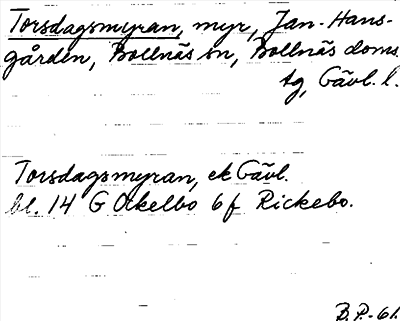 Torsdagsmyran, myr, Jan-Hans-
gården, Bollnäs sn, Bollnäs doms.
tg, Gävl. l.
Torsdagsmyran, ek Gävl.
bl. 14 G Ockelbo 6 f Rickebo.
B.P.-61.